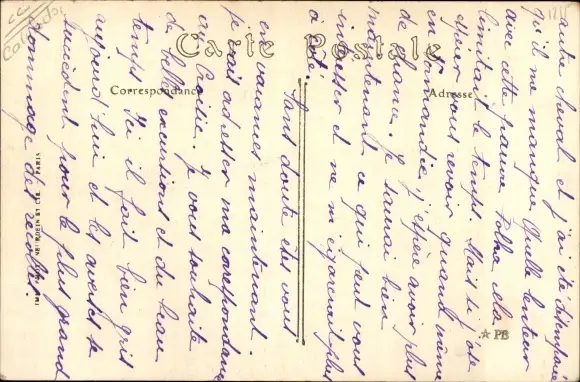 Calvados
Carte Postale
Correspondance
Adresse
autre cheval et j'ai été désemparée
qu'il me manque. Quelle lenteur
avec cette pauvre Polka, cela
limitait le temps. Mais si j'ose
espérer vous revoir quand même
en Normandie, j'espère avoir plus
de chance. Je saurai bien
maintenant ce qui peut vous
intéresser et ne m'égarerai plus
à côté.
Sans doute êtes vous
en vacances maintenant.
je vais adresser ma correspondance
en Croisic. Je vous souhaite
de belles excursions et du beau
temps. Ici il fait bien gris
aujourd'hui et les averses se
succèdent pour le plus grand
dommage des récoltes.
PARIS
★ PB